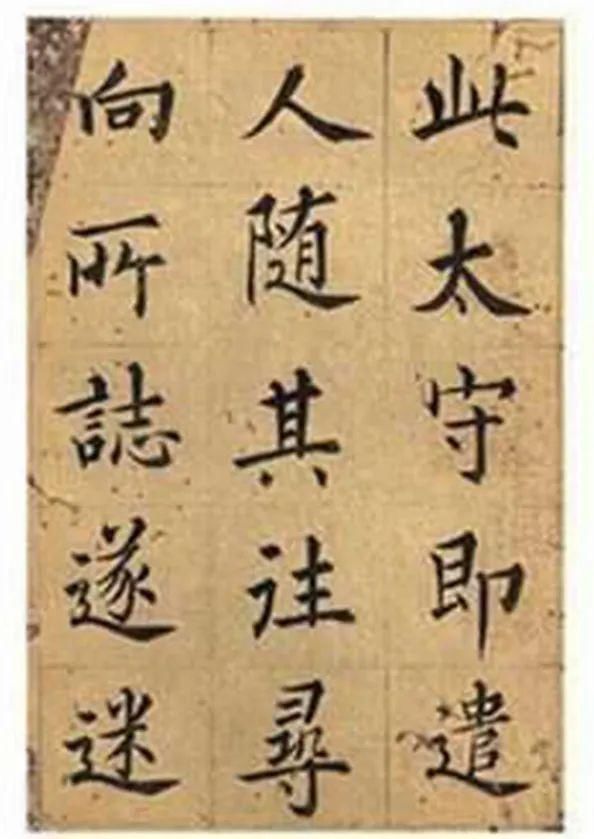 此太守即遣
人随其往尋
向所誌遂迷